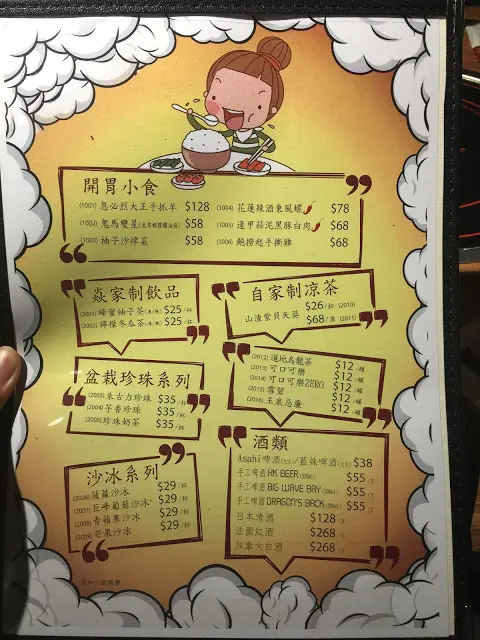 開胃小食
(1001) 忽必烈大王手抓羊 $128
(1002) 鬼馬雙星 $58
(1003) 柚子沙律菜 $58
(1004) 花蓮辣酒東風螺 $78
(1005) 蓬甲蒜泥黑豚白肉 $68
(1006) 鮑撈起手撕雞 $68
焱家制飲品
(2001) 蜂蜜柚子茶(凍/熱) $25/杯
(2002) 檸檬冬瓜茶(凍/熱) $25/杯
自家制凉茶
$26/杯 (2010)
山渣紫貝天葵 $68/渣 (2011)
盆栽珍珠系列
(2003) 朱古力珍珠 $35/杯
(2004) 芋香珍珠 $35/杯
(2005) 珍珠奶茶 $35/杯
(2012) 道地烏龍茶 $12/罐
(2013) 可口可樂 $12/罐
(2014) 可口可樂ZERO $12/罐
(2015) 雪碧 $12/罐
(2016) 玉泉忌廉 $12/罐
沙冰系列
(2006) 菠蘿沙冰 $29/杯
(2007) 巨峰葡萄沙冰 $29/杯
(2008) 青蘋果沙冰 $29/杯
(2009) 芒果沙冰 $29/杯
酒類
Asahi啤酒(大支)/藍妹啤酒(大支) $38
手工啤酒 HK BEER (330ml) $55/支
手工啤酒 BIG WAVE BAY (330ml) $55/支
手工啤酒 DRAGON'S BACK (330ml) $55/支
日本清酒 $128/支
法國紅酒 $268/支
加拿大白酒 $268/支
另加一服務費